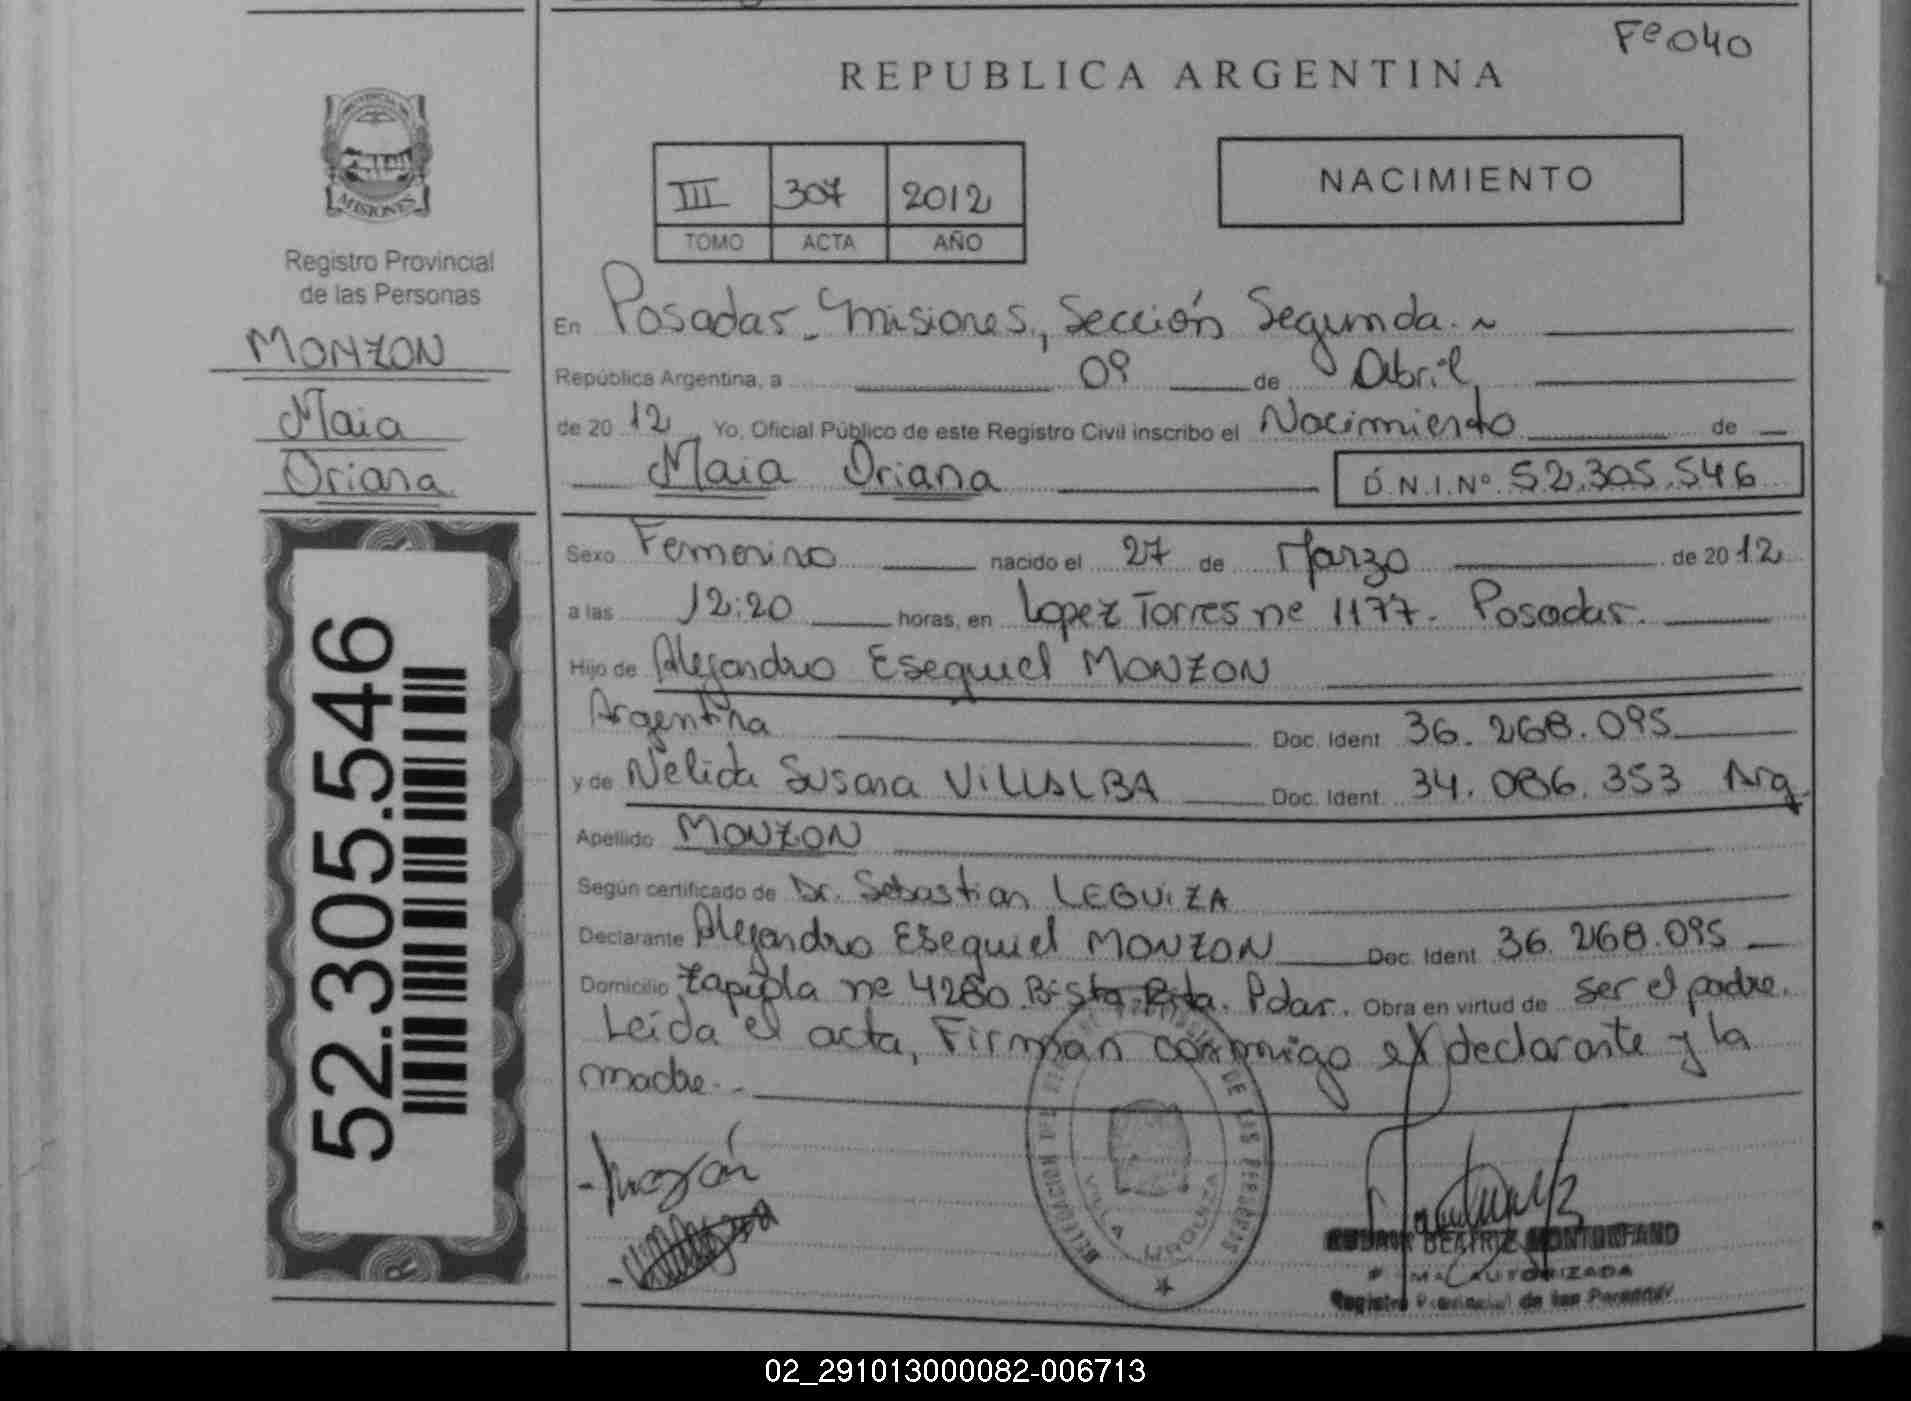 Fº 040
REPUBLICA ARGENTINA
PROVINCIA DE
MISIONES
Registro Provincial
de las Personas
MONZON
Maia
Oriana
52.305.546
III 307 2012
TOMO ACTA AÑO
NACIMIENTO
En Posadas - Misiones, Sección Segunda. ~
República Argentina, a 09 de Abril,
de 20 12 Yo, Oficial Público de este Registro Civil inscribo el Nacimiento de
Maia Oriana D.N.I.Nº 52.305.546
Sexo Femenino nacido el 27 de Marzo de 20 12
a las 12:20 horas, en Lopez Torres nº 1177. Posadas.
Hijo de Alejandro Esequiel MONZON
Argentina Doc. Ident 36.268.095
y de Nelida Susana VILLALBA Doc. Ident. 34.086.353 Arg
Apellido MONZON
Según certificado de Dr. Sebastian LEGUIZA
Declarante Alejandro Esequiel MONZON Doc. Ident 36.268.095
Domicilio Zapiola nº 4280 Bº Sta. Rita. Pdas. Obra en virtud de ser el padre.
Leída el acta, Firman conmigo el declarante y la
madre.
Monzón
DELEGACION DE LAS PERSONAS
VILLA URQUIZA
BEATRIZ
AUTORIZADA
Registro Provincial de las Personas
02_291013000082-006713